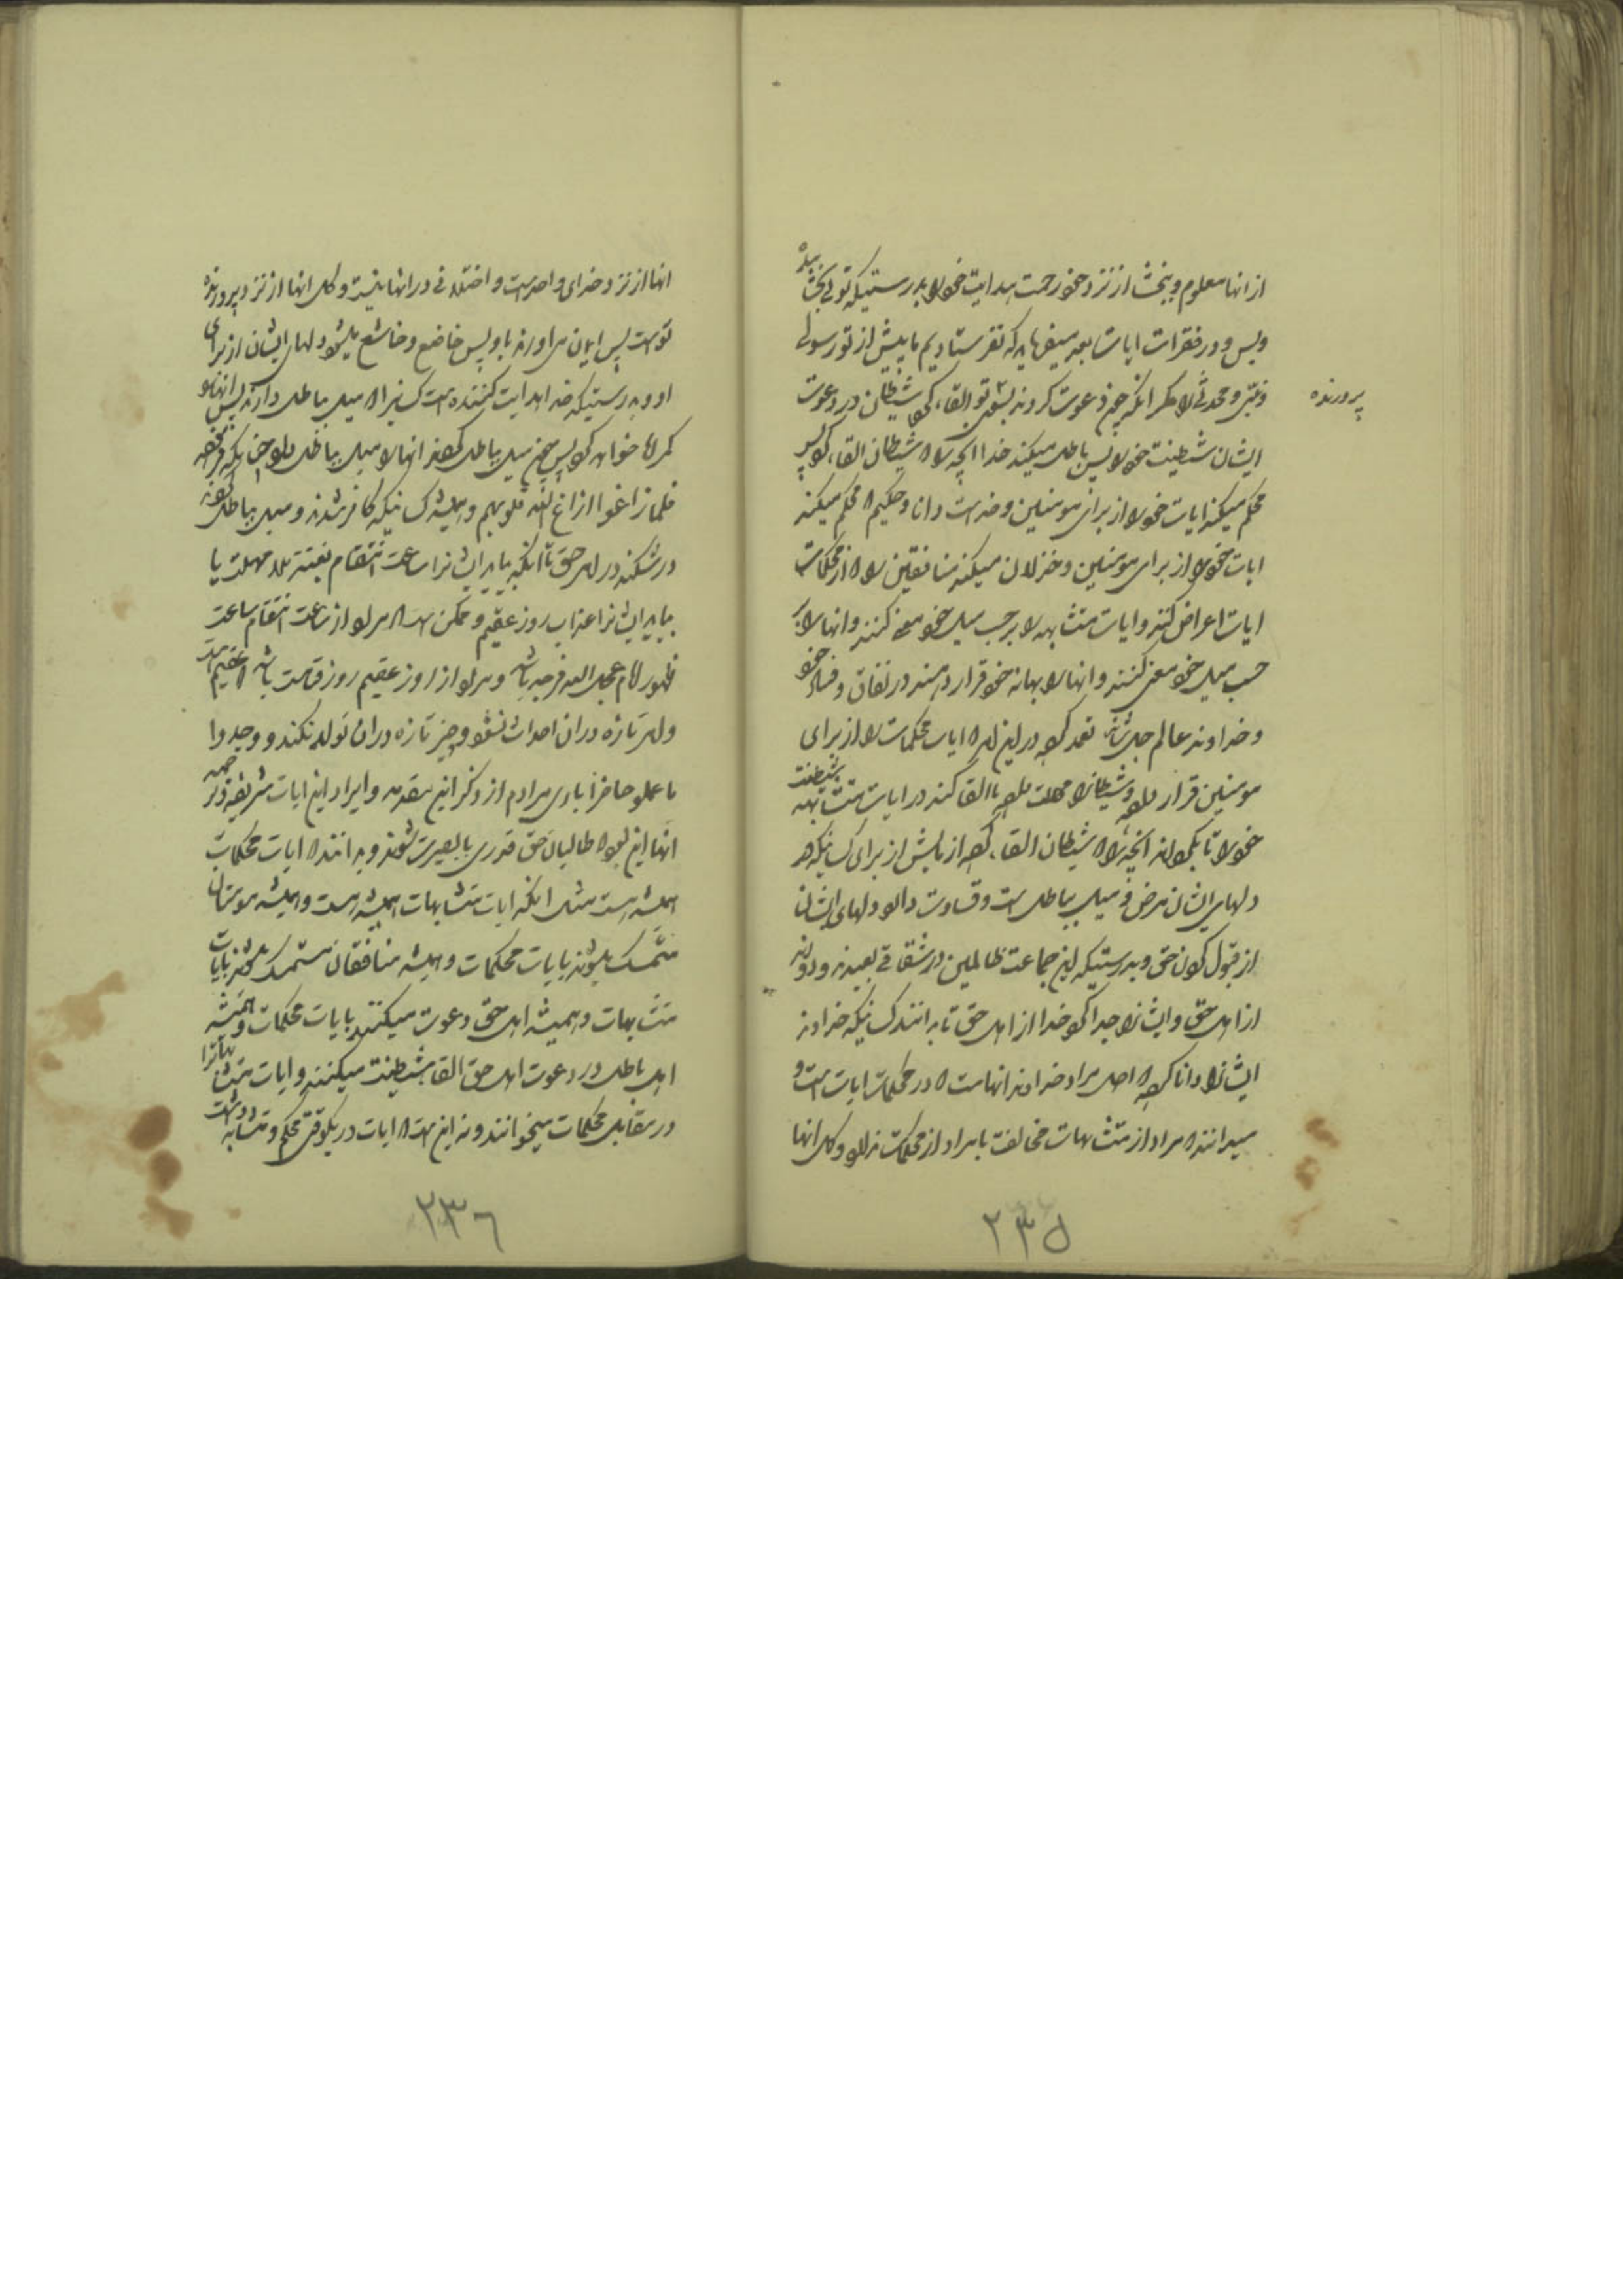 از انها معلوم و ببخش از نزد خود رحمت هدایت خود را بدرستیکه تو بخشنده
و بس و در فقرات ایات بعد میفرماید که نفرستادیم ما پیش از تو رسولی
و نبی و محدثی را مگر انکه چون دعوت کردند بسوی تو القاء کرد شیطان در دعوت
پرورنده
ایشان شیطنت خود را پس باطل میکند خدا انچه را که شیطان القاء کرد پس
محکم میکند ایات خود را از برای مومنین و خداست دانا و حکیم که محکم میکند
ایات خود را از برای مومنین و خذلان میکند منافقین را که از محکمات
ایات اعراض کنند و ایات متشابهه را بر حسب میل خود معنی کنند و انها را بر
حسب میل خود معنی کنند و انها را بهانه خود قرار دهند در نفاق و فساد خود
و خداوند عالم جل شانه تعمد کرده در این امر که ایات محکمات را از برای
مومنین قرار داده و شیطان را مهلت داده تا القا کند در ایات متشابهه شیطنت
خود را تا بگرداند انچه را که شیطان القاء کرده ازمایش از برای کسانیکه در
دلهای ایشان مرض و میل بباطل است و قساوت دارد دلهای ایشان
از قبول کردن حق و بدرستیکه این جماعت ظالمین در شقاقی بعیدند و دورند
از اهل حق و ایشان را جدا کرد خدا از اهل حق تا بدانند کسانیکه خداوند
ایشان را دانا کرده که اصل مراد خداوند انهاست که در محکمات ایات است و
میدانند که مراد از متشابهات مخالفت با مراد از محکمات ندارد و کل انها
۲۳۵
انها از نزد خدای واحد است و اختلافی در انها نیست و کل انها از نزد پرورنده
تو است پس ایمان می اورند باو پس خاضع و خاشع میشود دلهای ایشان از برای
او و بدرستیکه خدا هدایت کننده است کسانیرا که میل بباطل دارند پس انها را
گمراه خواند کرد پس چون میل بباطل کردند انها را میل بباطل داد چنانکه فرموده
فلما زاغوا ازاغ الله قلوبهم و همیشه کسانیکه کافر شدند و میل بباطل کردند
در شکند در امر حق تا انکه بیاید ایشانرا ساعت انتقام بغتة بلا مهلت یا
بیاید ایشانرا عذاب روز عقیم و ممکن است که مراد از ساعت انتقام ساعت
ظهور امام عجل الله فرجه باشد و مراد از روز عقیم روز قیامت باشد که عقیم است
و امر تازه در ان احداث نشود و چیز تازه دران تولد نکند و وجدوا
ما عملو حاضرا باری مرادم از ذکر این مقدمه و ایراد این ایات شریفه و ترجمه
انها این بود که طالبان حق قدری با بصیرت شوند و بدانند که ایات محکمات
همیشه هست مثل انکه ایات متشابهات همیشه هست و همیشه مومنان
متمسک میشوند بایات محکمات و همیشه منافقان متمسک میشوند بایات
متشابهات و همیشه اهل حق دعوت میکنند بایات محکمات و همیشه
اهل باطل در دعوت اهل حق القا شیطنت میکنند و ایات متشابهاترا
در مقابل محکمات میخوانند و نه این است که ایات در یکوقتی محکم و متشابه داشت
۲۳۶